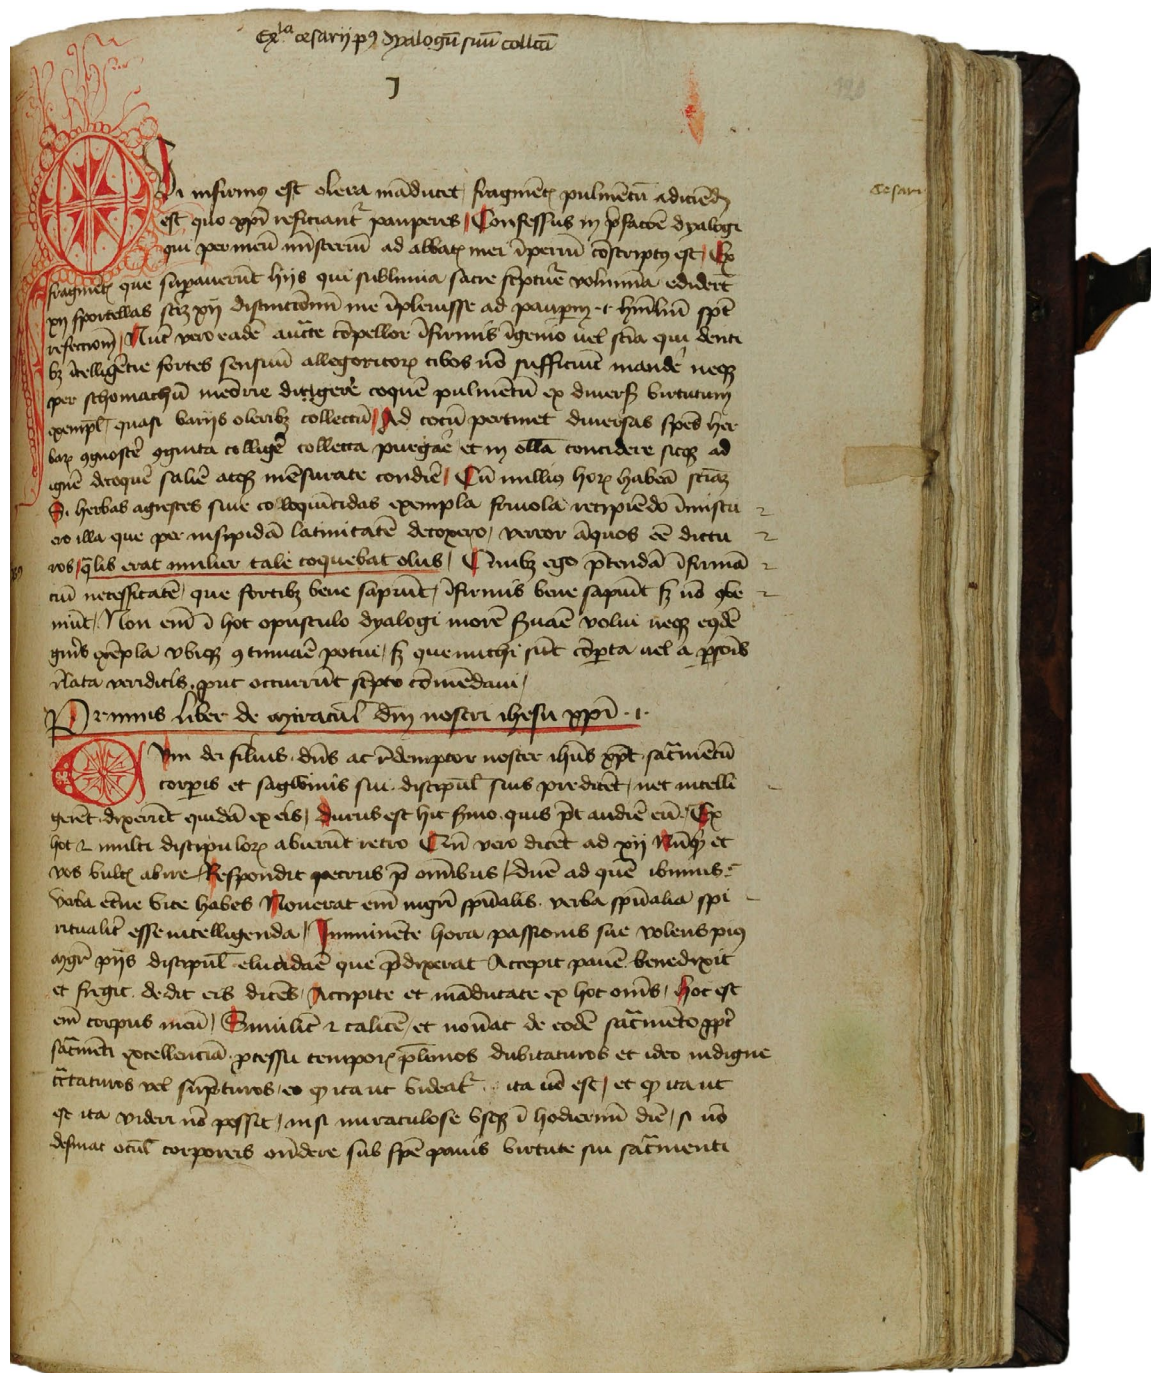 Exla cesarij p9 dyalogū suū collcā
J
Cesari
Qui infirmus est olera māducet, fragmētꝭ pulmētū adiciēdū
est quo xp̄i reficiant᷑ pauperes, Confessus in p̄facōe dyalogi
qui per meū mīsteriū ad abbatꝭ mei īperiū cōscriptꝰ est, Ex
fragmētꝭ que suꝑauerūt hijs qui sublimia sacre sc̄ptur̄e volumina ediderūt
xij sportellas scꝫ xij distinctionū me īpleuisse ad pauꝑū et
refectionē, Nūc vero eadē auctē cōpellor īfirmis īgenio uel scīa qui denti
bꝫ ītelligētie fortes sensuū allegoricoꝝ cibos nō sufficiūt mandē neqꝫ
per schomachū meōrie digerē coquē pulmētū ex diuersꝭ virtutum
exempl̄ quasi varijs oleribꝫ collectū, Ad cocū pertinet diuersas sp̄es her
baꝝ ꝯgnoscē ꝯgnita colligē collecta purgāe et in ollā concidere sicqꝫ ad
ignē decoquē saliē atqꝫ mēsurate condiē, Cū nullius hoꝝ habeā sciāꝫ
Si herbas agrestes siue coloquītidas exempla friuola recipiēdo īmiscu
ero illa que per insipidā latinitatē decoxero, vereor āquos eē dictu
ros, q̄lis erat mulier tale coquebat olus, Quibꝫ ego p̄tendā īfirmā
ciū necessitatē, que fortibꝫ bene sapiūt, īfirmis bene sapiūt sꝫ nō ꝯue
niūt, Non em̄ ī hoc opusculo dyalogi morē s̄uāe volui neqꝫ eꝯdē
gn̄is exēpla vbiqꝫ ꝯtinuāe potui, sꝫ que michi sūt cōꝑta uel a ꝑsōis
r̄lata veridicis, ꝓut occurrūt sc̄pto cōmēdaui,
Primus liber de miracul̄ dn̄i nostri ihesu xp̄i .1.
Cum dei filius dn̄s ac r̄demptor noster ihūs xp̄c sac̄mētū
corꝑis et sagwinis sui discipul̄ suis predicēt, nec intelli
gerēt dixerūt quidā ex eis, Durus est hic s̄mo quis pōt audiē eū, Ex
hoc multi discipuloꝝ abierūt retro Cū vero dicēt ad xij Nūqͥd et
vos vultꝭ abire, Respondit petrus p̄ omībus, dn̄e ad quē ibimus
verba et̄ne vite habes Nouerat em̄ mgr̄i sp̄ualis verba sp̄ualia spi
ritualit̄ esse intelligenda, Imminēte hora passionis sue volens piꝰ
mgr̄ pijs discipul̄ elucidāe que p̄dixerat Accepit panē benedixit
et fregit dedit eis dicēs, Accipite et māducate ex hoc oms̄, hoc est
em̄ corpus meū, Similit̄ et calicē, et nouāt de eodē sac̄mēto ꝓpt̄
sac̄mēti excellenciā ꝓcessu tempoꝝ pl̄imos dubitaturos et ideo indigne
tractaturos vel sūpturos, eo qꝫ ita ut videat᷑ ita nō est, et qꝫ ita ut
est ita videri nō possit, nisi miraculose vsqꝫ ī hodiernū diē, si nō
desinat ocul̄ corporeis ondere sub sp̄e panis virtute sui sac̄menti